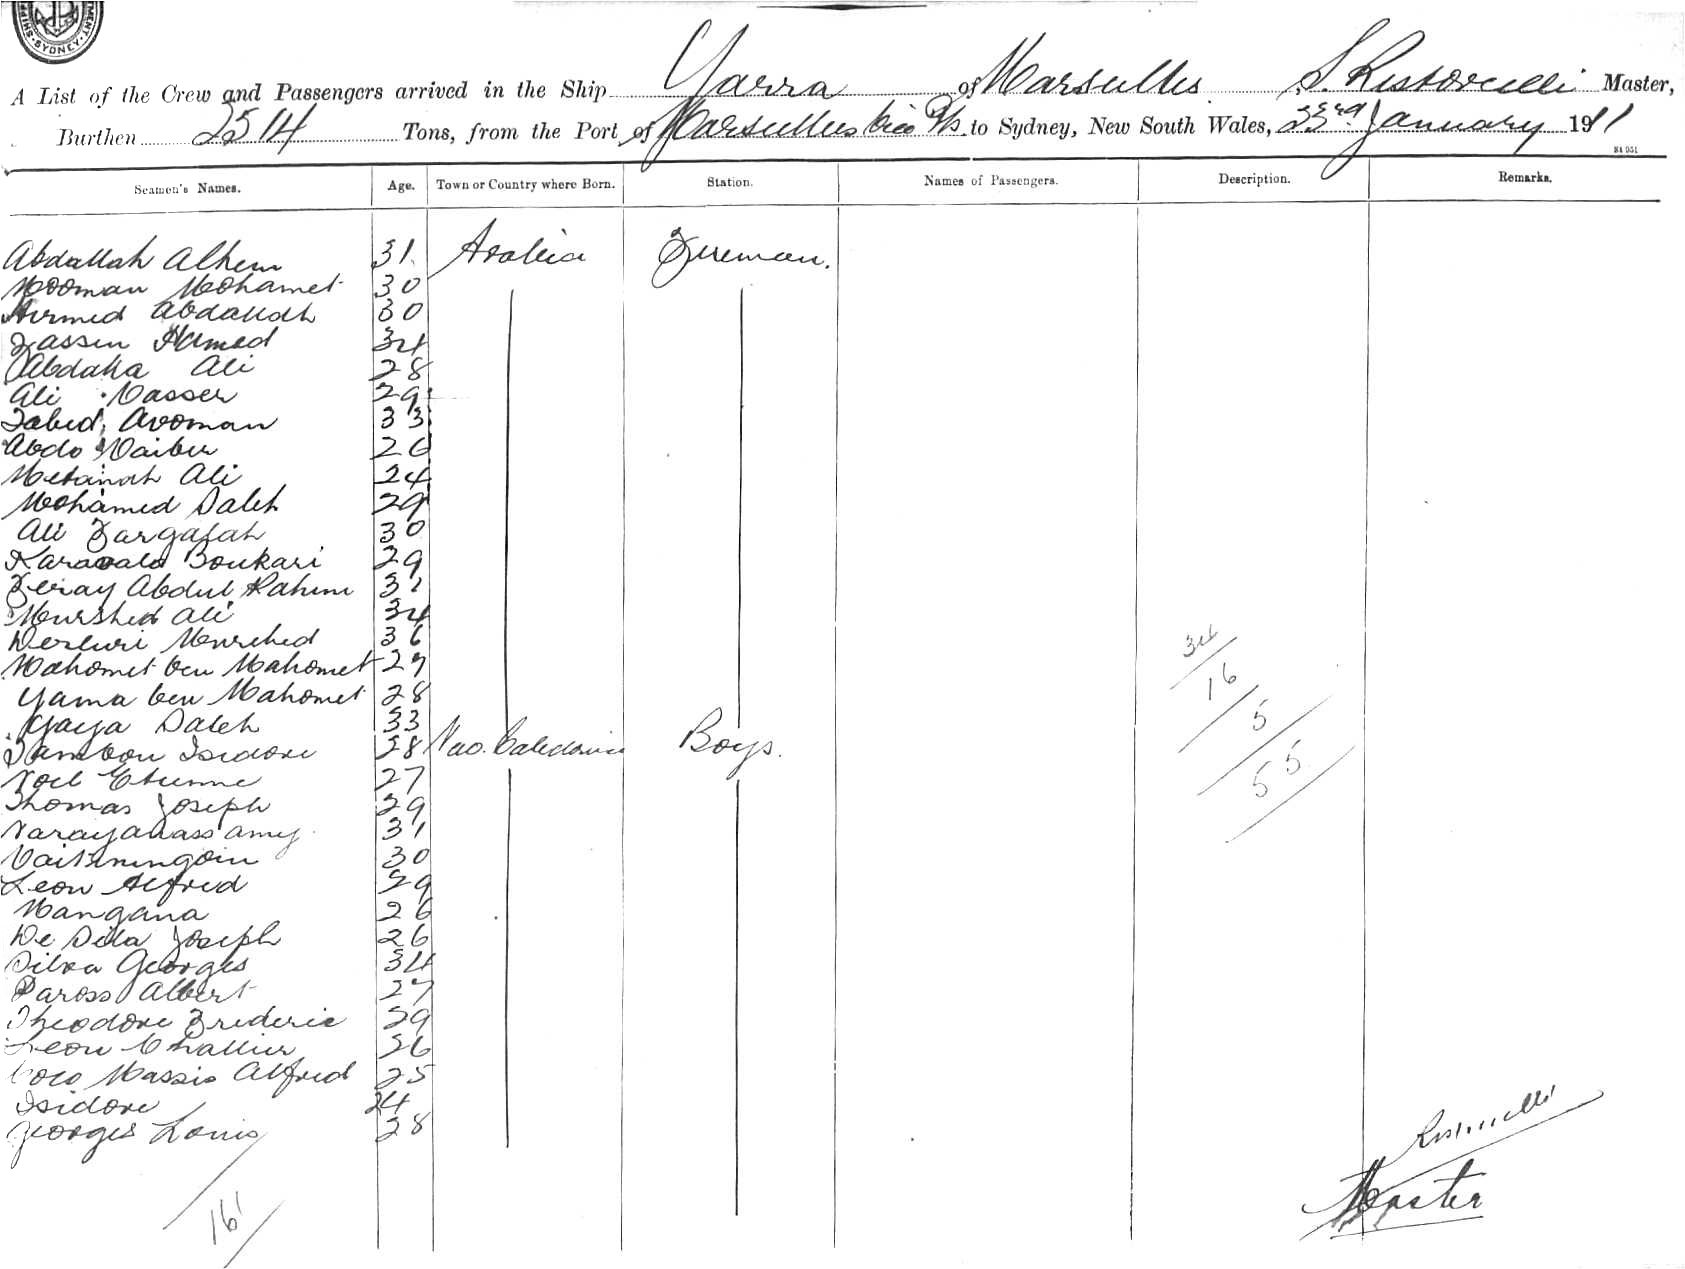 SYDNEY
A List of the Crew and Passengers arrived in the Ship Yarra of Marseilles S. Ristorcelli Master,
Burthen 2514 Tons, from the Port of Marseilles via Pts. to Sydney, New South Wales, 23rd January 1911
Seamen's Names. Age. Town or Country where Born. Station. Names of Passengers. Description. Remarks.
Abdallah Alhem 31 Arabia Fireman.
Nooman Mohamet 30
Ahmed Abdallah 30
Yassin Hamed 34
Abdalla Ali 28
Ali Nasser 29
Zabid Avoman 33
Abdo Naiber 26
Metanah Ali 24
Mohamed Saleh 29
Ali Fargalah 30
Karavala Boukari 29
Feray Abdul Rahim 32
Murshid Ali 34
Murched 36
Mahomet ben Mahomet 29
Yama ben Mahomet 28
Yaya Saleh 33
Tambou Isidore 28 New Caledonia Boys.
Noel Etienne 27
Thomas Joseph 29
Narayanassamy 31
Vaitiningoin 30
Leon Alfred 29
Mangana 26
De Silva Joseph 26
Silva Georges 34
Paross Albert 27
Theodore Frederic 29
Leon Challier 26
Coco Massio Alfred 25
Isidore 24
Georges Louis 28
161
34
16
5
55
Ristorcelli
Master